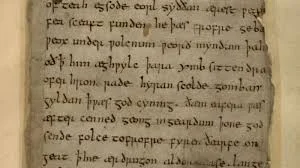 ofteah egsode eorl syððan ærest ƿe
sceaft funden he þæs frofre geba
ƿeox under ƿolcnum ƿeorð myndum þah
oð ꝥ him æghƿylc þara ymb sittendra
ofer hron rade hyran scolde gomban
gyldan ꝥ ƿæs god cyning. ðæm eafera ƿæs
æfter cenned geong in geardum þone god
sende folce tofrofre fyren ðearfe on
geat ꝥ hie ær drugon aldor ase. lange